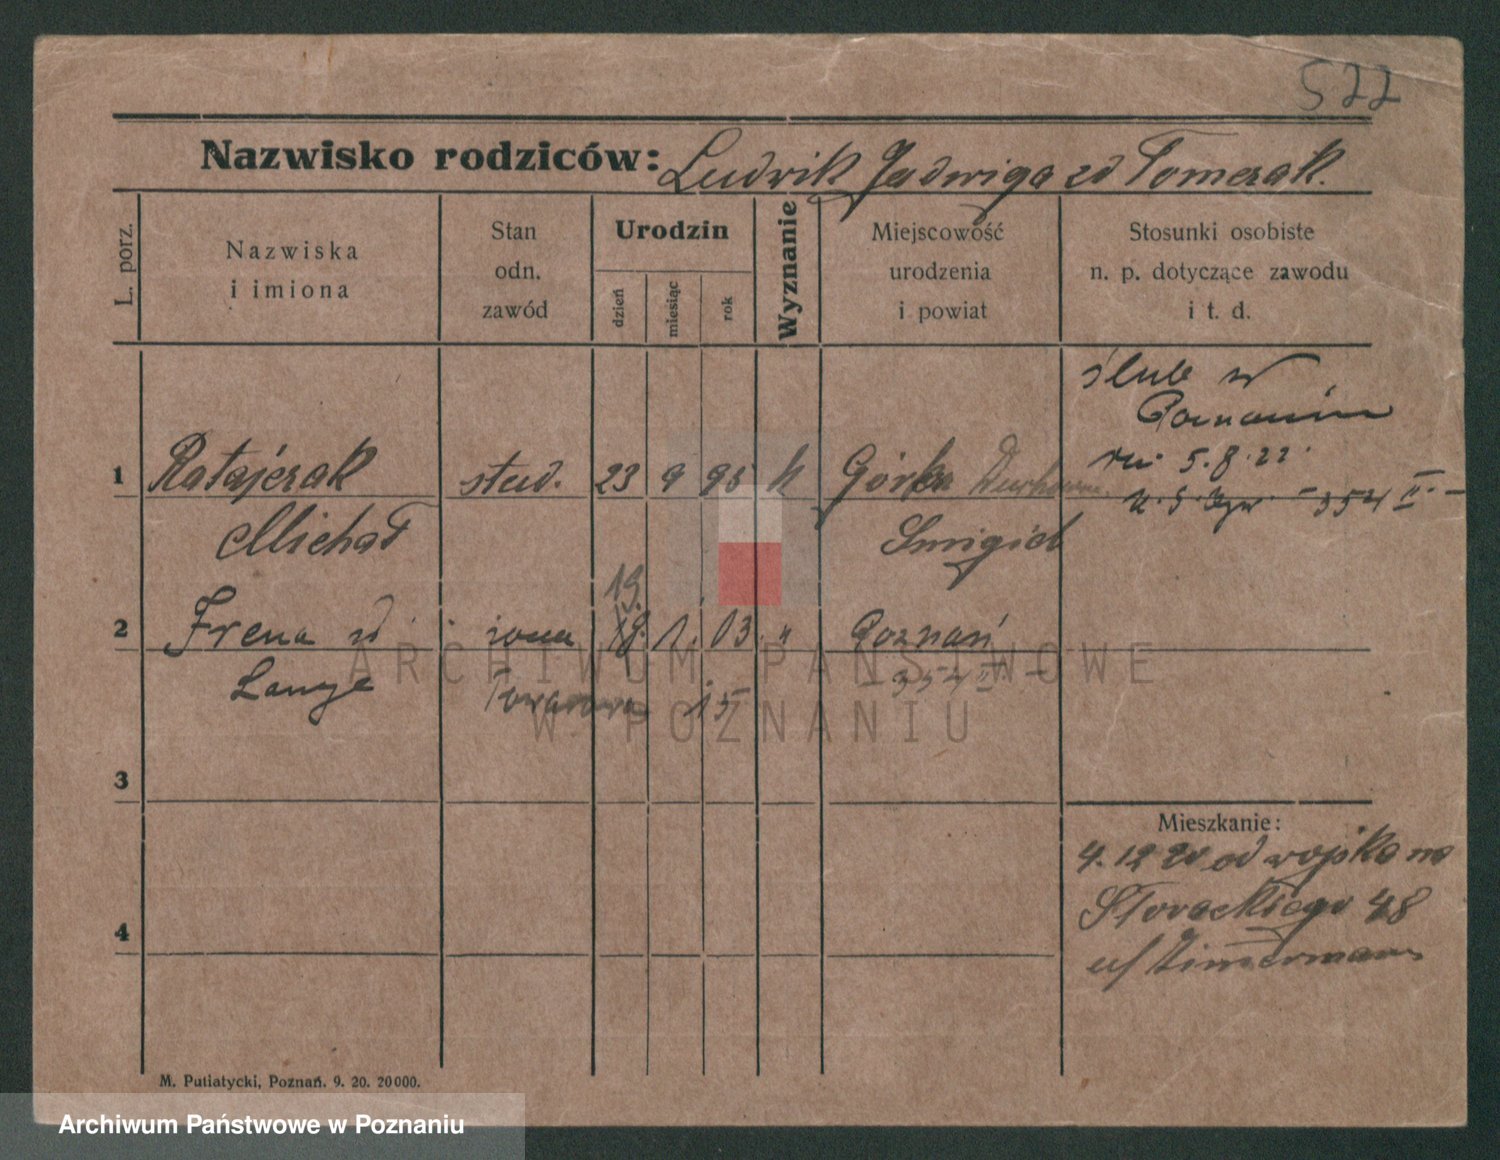 522
Nazwisko rodziców: Ludwik Jadwiga zd Tomczak.
L. porz.
Nazwiska
i imiona
Stan
odn.
zawód
Urodzin
dzień
miesiąc
rok
Wyznanie
Miejscowość
urodzenia
i powiat
Stosunki osobiste
n. p. dotyczące zawodu
i t. d.
ślub w
Poznaniu
dn. 5.8.22.
354 II
1 Ratajczak stud. 23 9 95 k Górka Duchowna
Michał Śmigiel
19
2 Irena zd żona 18. 1. 03. " Poznań
Lange Towarowa 15 354 II
3
4
Mieszkanie:
4.12 20 od wojska na
Słowackiego 48
u/ Zimmermann
M. Putiatycki, Poznań. 9. 20. 20000.
ARCHIWUM PAŃSTWOWE
W POZNANIU
Archiwum Państwowe w Poznaniu